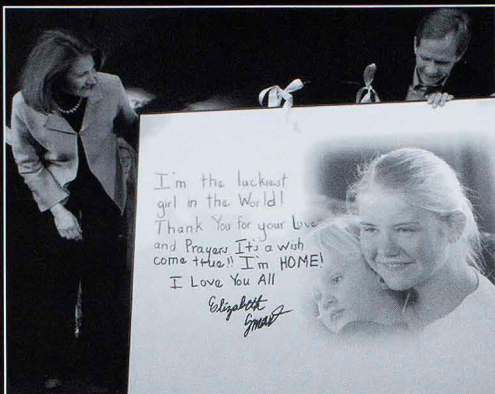 I'm the luckiest
girl in the World!
Thank You For your Love
and Prayers It's a wish
come true!! I'm HOME!
I Love You All
Elizabeth
Smart